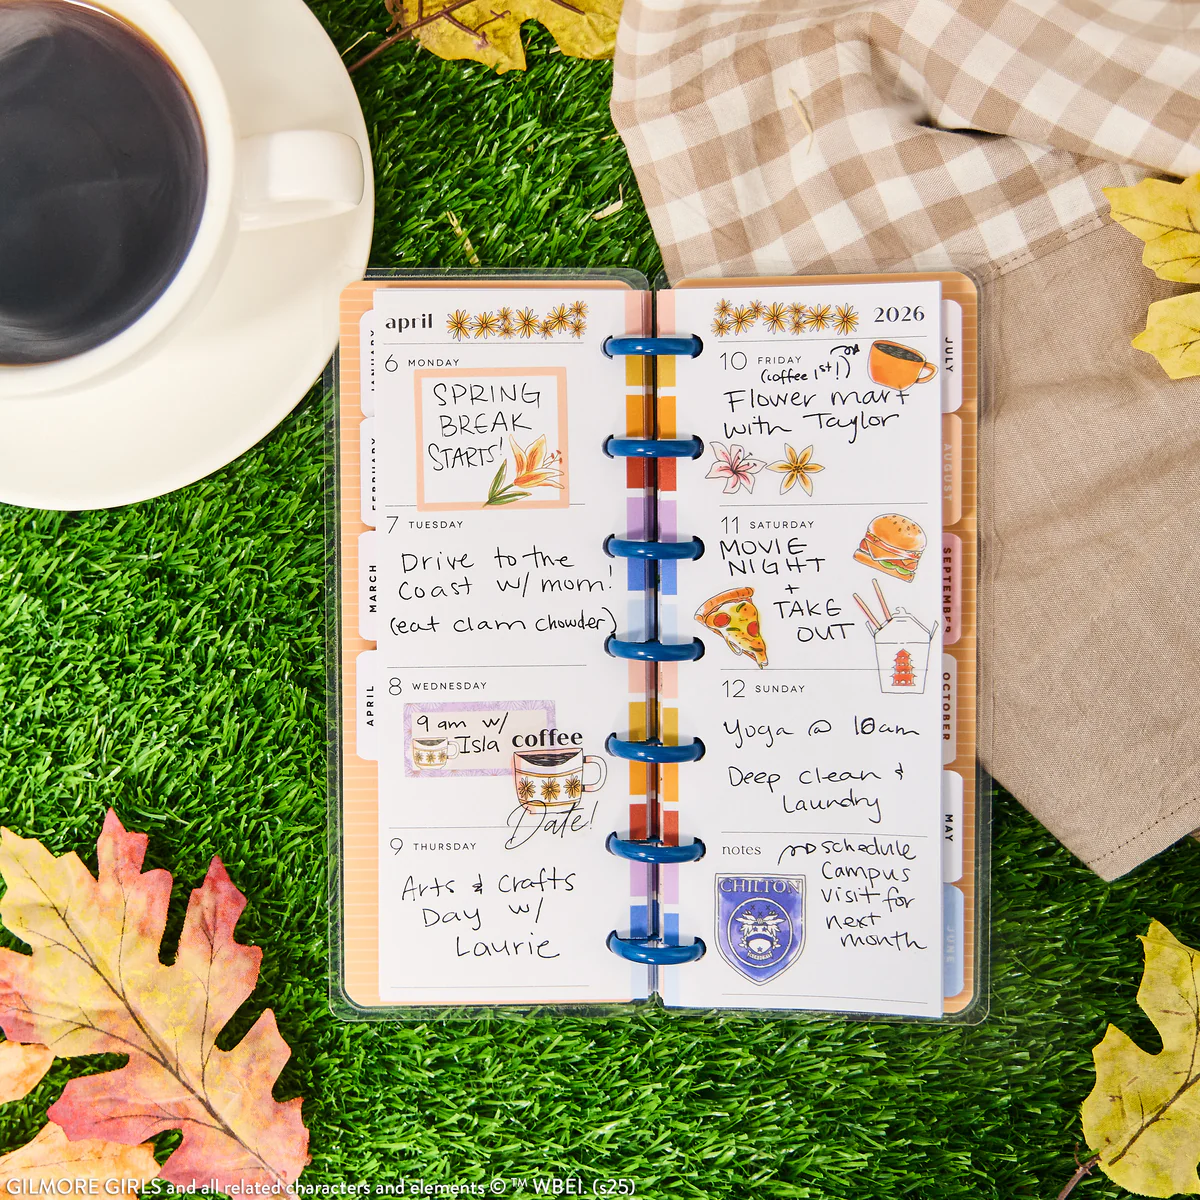 april
2026
JANUARY
FEBRUARY
MARCH
APRIL
6 MONDAY
SPRING
BREAK
STARTS!
7 TUESDAY
Drive to the
Coast w/ mom!
(eat clam chowder)
8 WEDNESDAY
9 am w/
Isla
coffee
Date!
9 THURSDAY
Arts & Crafts
Day w/
Laurie
10 FRIDAY
(coffee 1st!)
Flower mart
with Taylor
11 SATURDAY
MOVIE
NIGHT
+
TAKE
OUT
12 SUNDAY
Yoga @ 10am
Deep clean &
Laundry
notes
schedule
Campus
visit for
next
month
CHILTON
JULY
AUGUST
SEPTEMBER
OCTOBER
MAY
JUNE
GILMORE GIRLS and all related characters and elements © ™ WBEI. (s25)